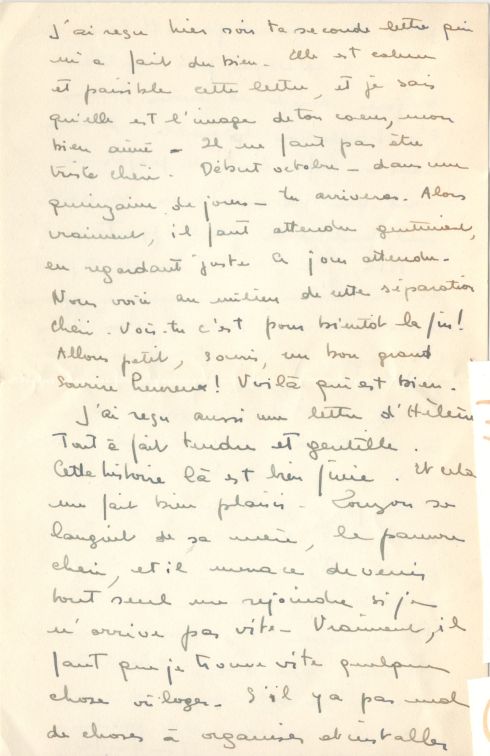 J'ai reçu hier soir ta seconde lettre qui
m'a fait du bien. Elle est calme
et paisible cette lettre, et je sais
qu'elle est l'image de ton coeur, mon
bien aimé - Il ne faut pas être
triste chéri. Début octobre - dans une
quinzaine de jours - tu arriveras. Alors
vraiment, il faut attendre gentiment,
en regardant juste le jour attendu.
Nous voici au milieu de cette séparation
chéri. Vois-tu c'est pour bientôt la fin!
Allons petit, souris, un bon grand
sourire heureux! Voilà qui est bien.
J'ai reçu aussi une lettre d'Hélène
Tout à fait tendre et gentille.
Cette histoire là est bien finie. Et cela
me fait bien plaisir. se
languit de sa mère, le pauvre
chéri, et il menace de venir
tout seul me rejoindre si je
n'arrive pas vite - Vraiment, il
faut que je trouve vite quelque
chose où loger. S'il y a pas mal
de choses à organiser et installer